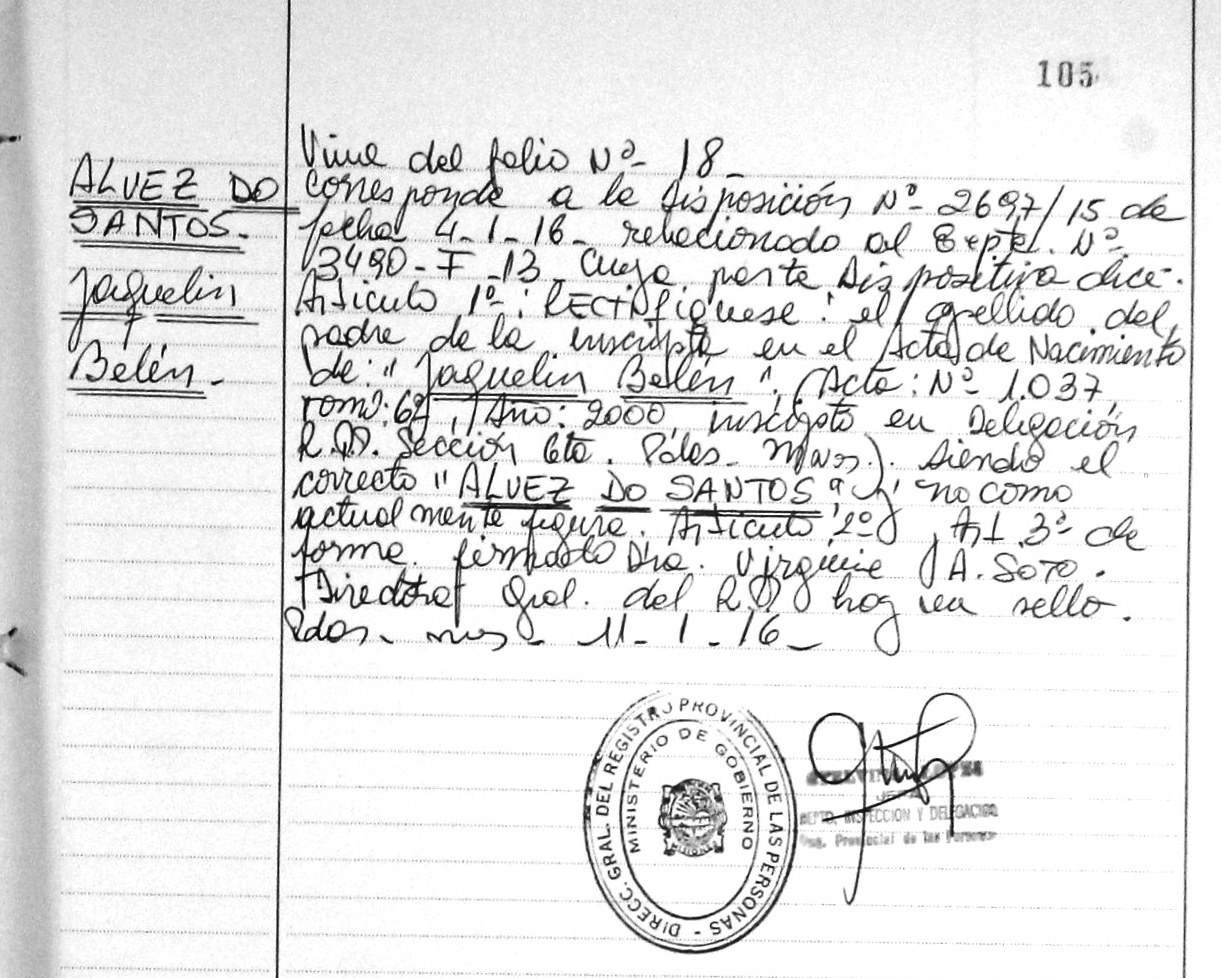 105
ALVEZ DO
SANTOS.-
Jaquelin
Belén.-
Viene del folio Nº- 18_
corresponde a la disposición Nº- 2697/15 de
fecha 4-1-16- relacionado al Expte. Nº
3490-F-13 Cuya parte Dispositiva dice-
Articulo 1º: RECTIfiquese: el apellido del
padre de la inscripta en el Acta de Nacimiento
de: "Jaquelin Belén", (Acta: Nº 1.037,
Tomo: 6, Año: 2000, inscripto en Delegación
R.P. Sección 6ta. Pdas. Mnes.). siendo el
correcto "ALVEZ DO SANTOS" y no como
actualmente figura. Articulo 2º, Art 3º de
forma. firmado Dra. Virginia A. SOTO.
Directora Gral. del R.P. hay un sello.
Pdas- mnes- 11-1-16_
DIRECC. GRAL. DEL REGISTRO PROVINCIAL DE LAS PERSONAS -
MINISTERIO DE GOBIERNO
JEFA
DEPTO. INSPECCION Y DELEGACION
Reg. Provincial de las Personas